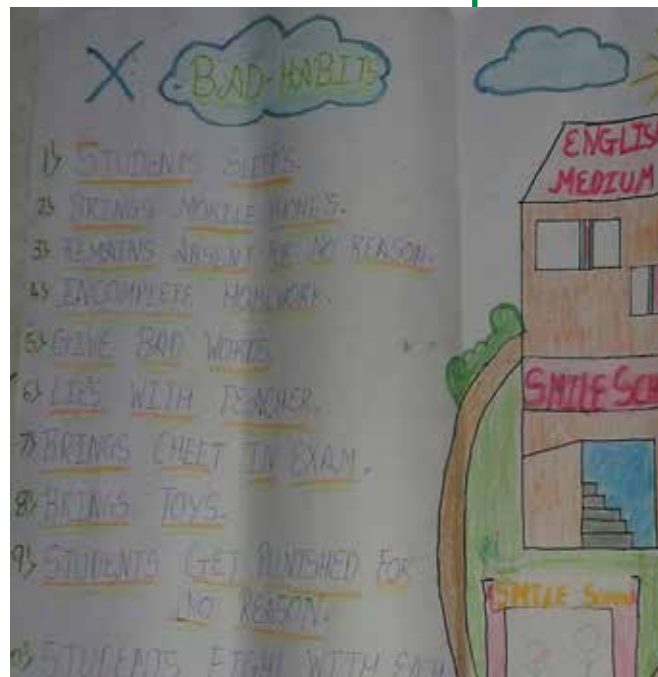 X BAD HABITS
1) STUDENTS
2) BRINGS MOBILE PHONE'S.
3) REMAINS ABSENT FOR NO REASON.
4) INCOMPLETE HOMEWORK.
5) GIVE BAD WORDS.
6) LIE'S WITH TEACHER.
7) BRINGS CHEET IN EXAM.
8) BRINGS TOYS.
9) STUDENTS GET PUNISHED FOR
NO REASON.
10) STUDENTS FIGHT WITH EACH
ENGLIS
MEDIUM
SMILE SCH
SMILE School